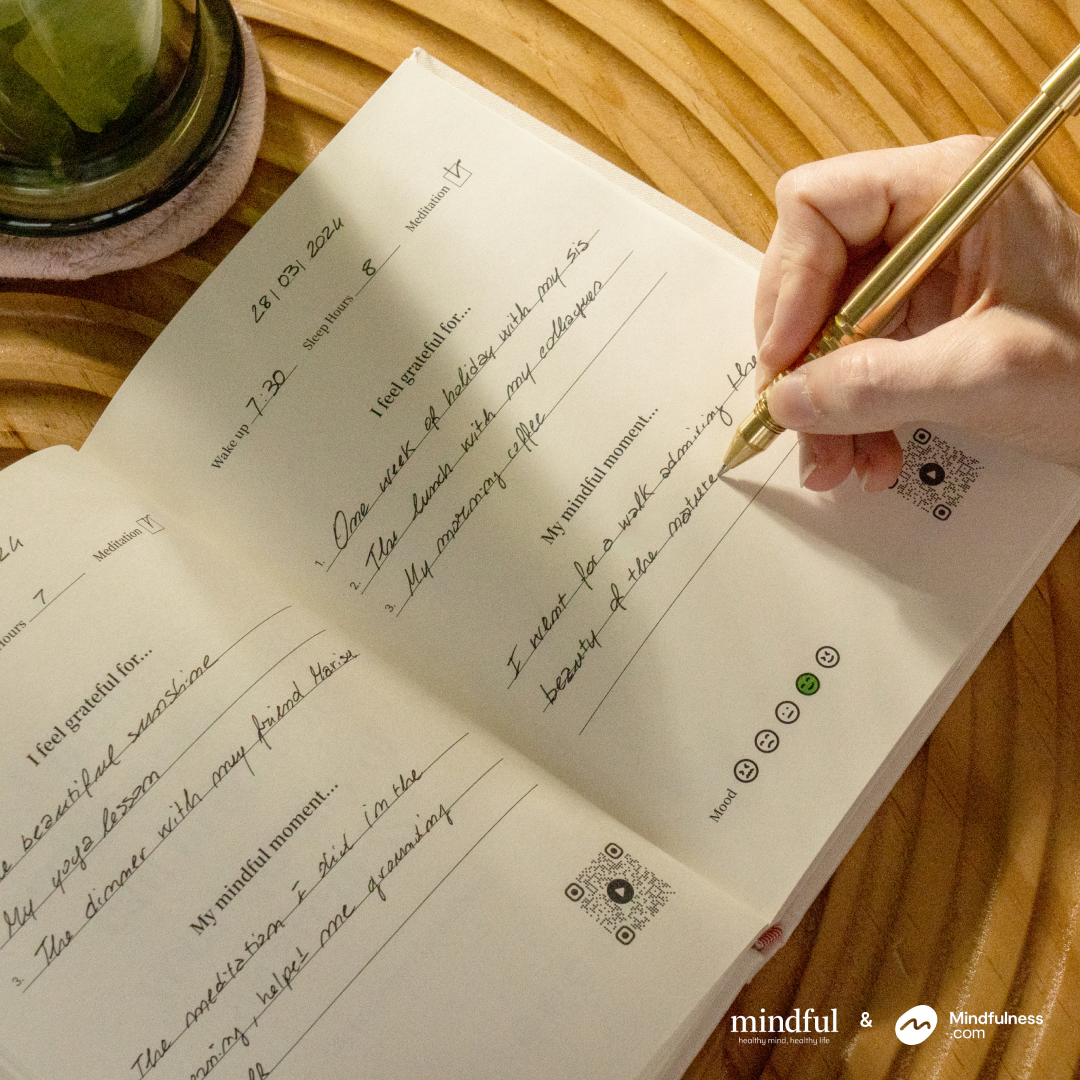 24
Meditation
Hours 7
I feel grateful for...
beautiful sunshine
My yoga lesson
3. The dinner with my friend Marisa
My mindful moment...
The meditation I did in the
, helped me grounding
28/03/2024
Wake up 7:30 Sleep Hours 8 Meditation
I feel grateful for...
1. One week of holiday with my sis
2. The lunch with my colleagues
3. My morning coffee
My mindful moment...
I went for a walk admiring the
beauty of the nature
Mood
mindful & Mindfulness
healthy mind, healthy life .com